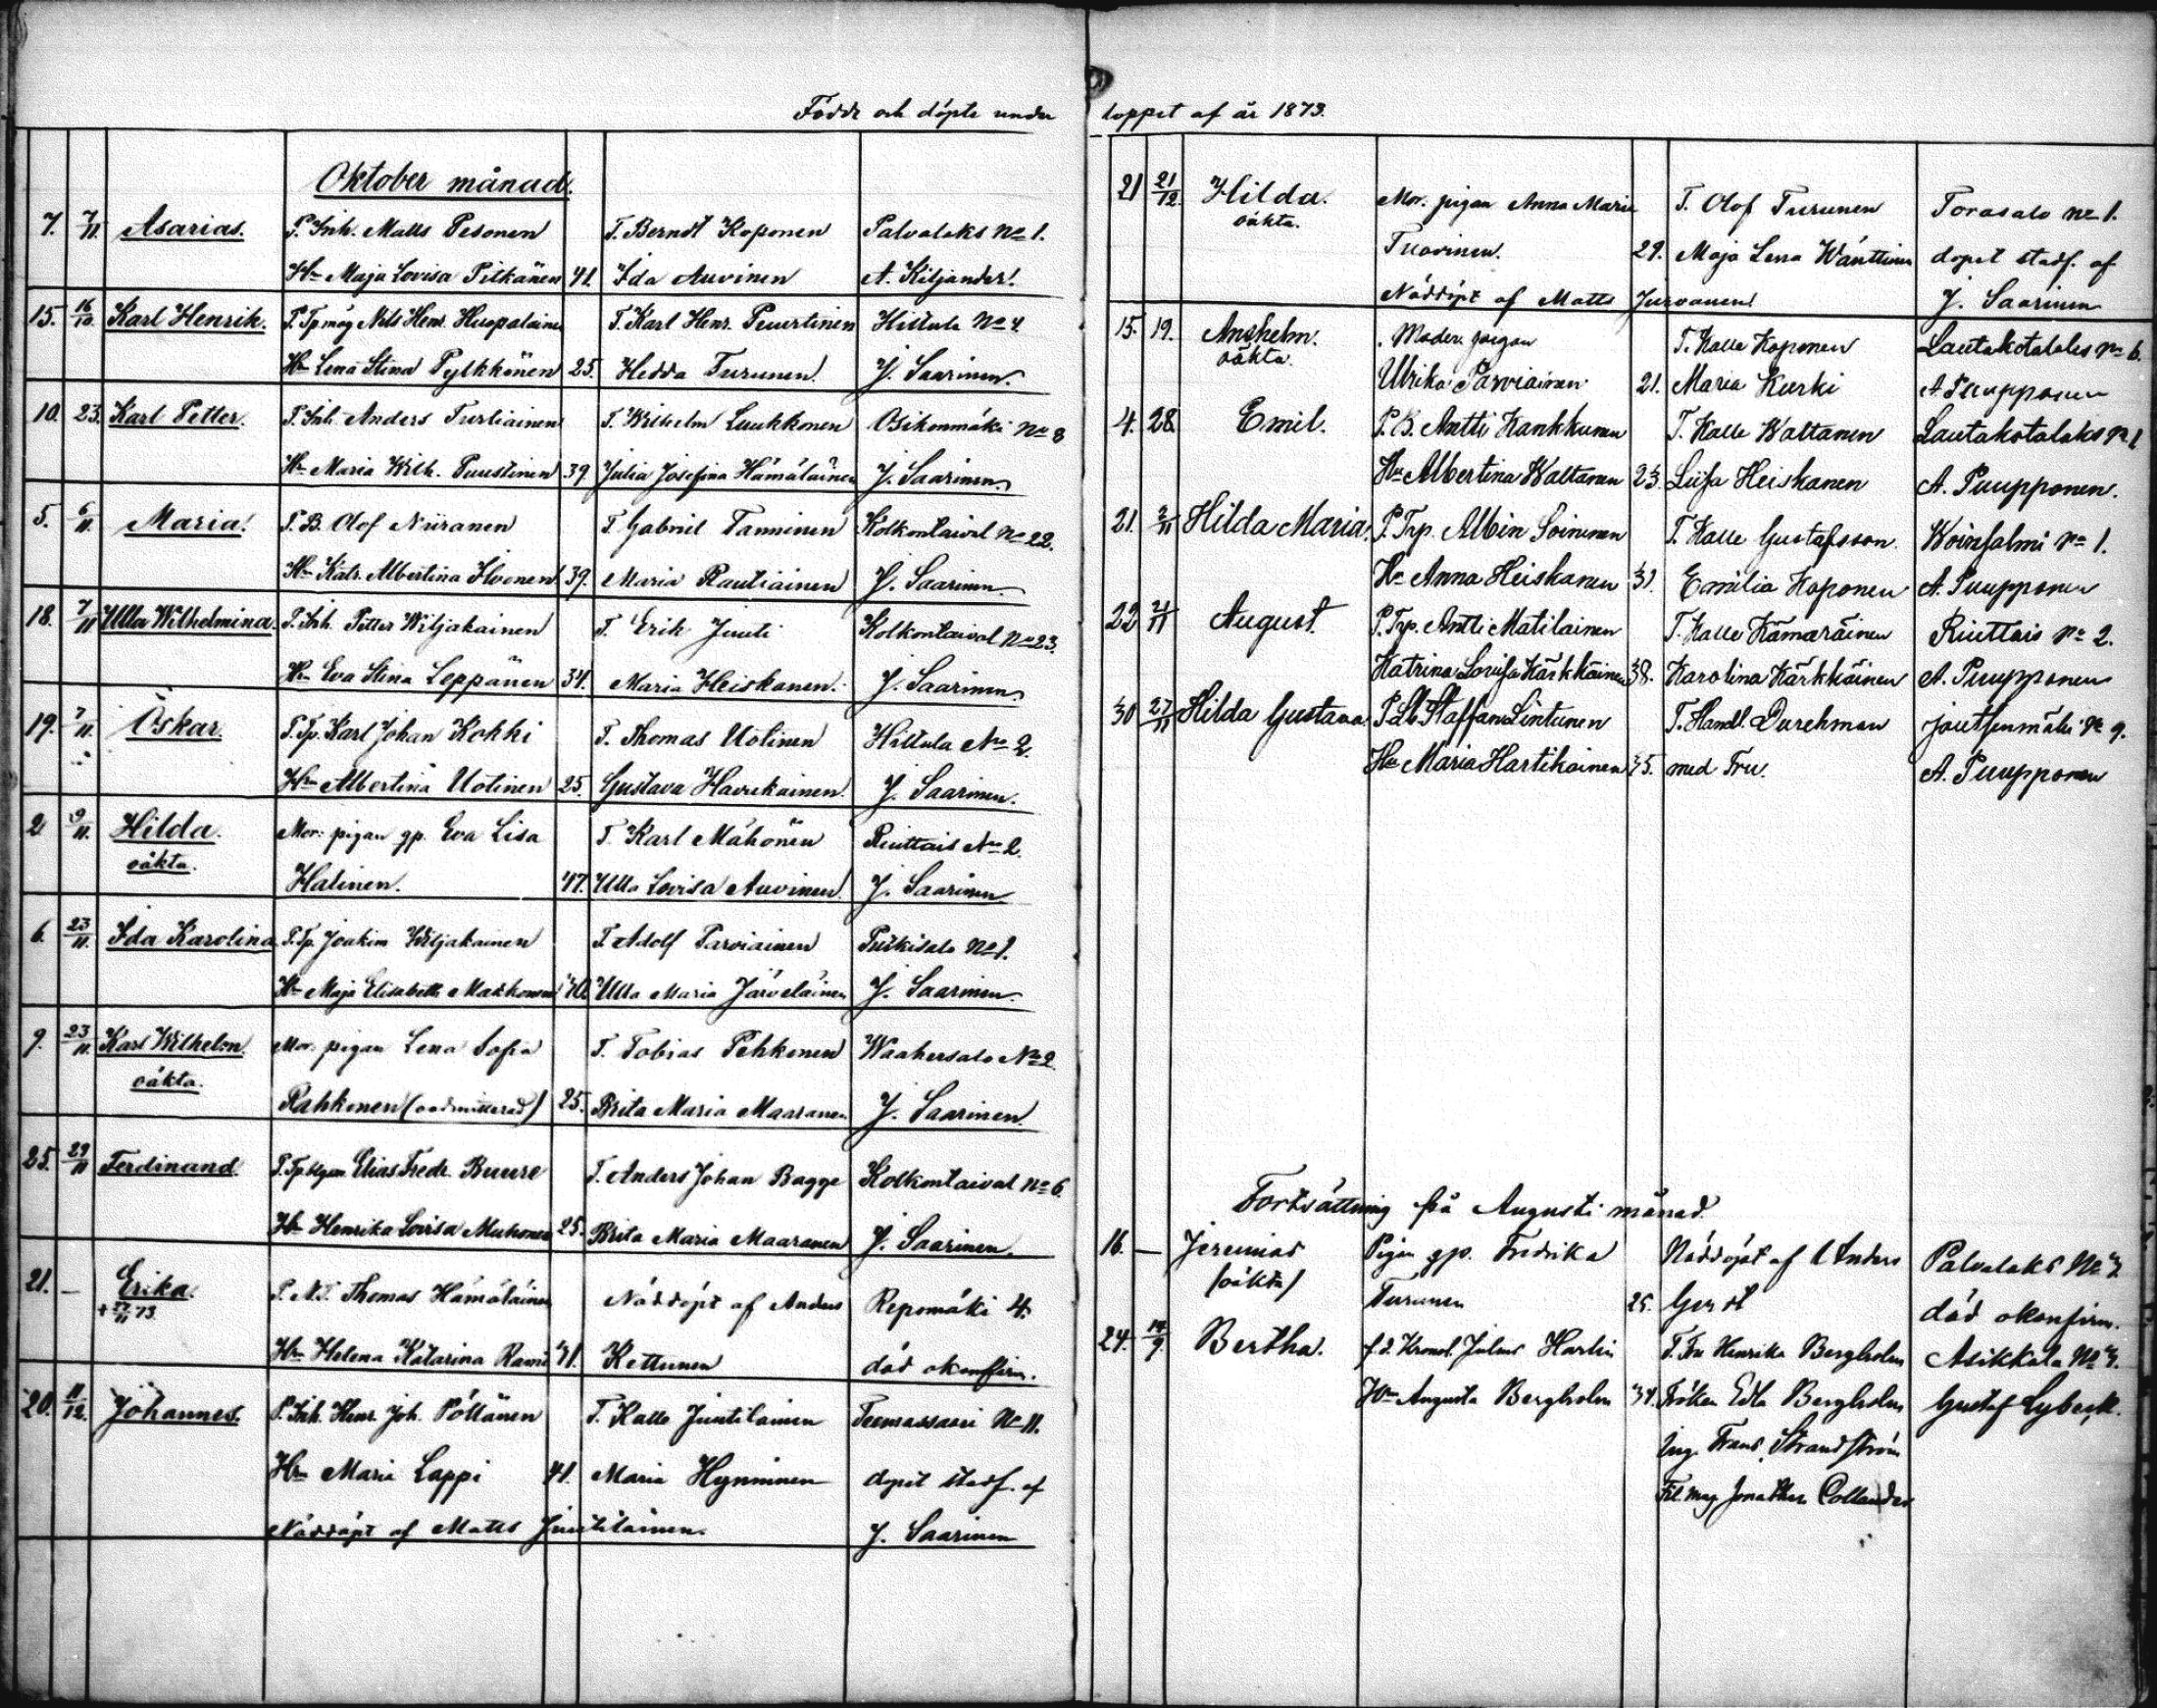 Födde och döpte under loppet af år 1873.
Oktober månad.
7. 7/11 Asarias. P. Inh. Matts Pesonen T. Berndt Koponen Palvalaks No 1.
Hn Maja Lovisa Pitkänen 41. Ida Auvinen A. Kiljander.
15. 16/10 Karl Henrik. P. Tp måg Nils Henr. Huopalainen T. Karl Henr. Puustinen Hiltula No 4
Hn Lena Stina Pylkkönen 25. Hedda Turunen. J. Saarinen.
10. 23. Karl Petter. P. Inh. Anders Turtiainen T. Wilhelm Luukkonen Osikonmäki No 8
Hn Maria Wilh. Puustinen 39. Julia Josefina Hämäläinen J. Saarinen.
5. 6/11. Maria. P. B. Olof Niiranen T. Gabriel Tanninen Kolkontaival No 22.
Hn Katr. Albertina Ilvonen 39. Maria Rautiainen J. Saarinen.
18. 7/11 Ulla Wilhelmina. P. Inh. Petter Wiljakainen T. Erik Juuti Kolkontaival No 23.
Hn Eva Stina Leppänen 34. Maria Heiskanen. J. Saarinen.
19. 7/11. Oskar. P. Tp. Karl Johan Kokki T. Thomas Uotinen Hiltula No 2.
Hn Albertina Uotinen 25. Gustava Havukainen. J. Saarinen.
2 9/11. Hilda. Mor: pigan gp. Eva Lisa T. Karl Mähönen Ruuttais No 2.
oäkta. Halinen. 47. Ulla Lovisa Auvinen. J. Saarinen
6. 23/11. Ida Karolina P. Tp. Joakim Wiljakainen T. Adolf Parviainen Purkisalo No 1.
Hn Maja Elisabeth Makkonen 40. Ulla Maria Järveläinen J. Saarinen.
9. 23/11 Karl Wilhelm. Mor: pigan Lena Sofia T. Tobias Pehkonen Waahersalo No 2.
oäkta. Rahkonen (oadmitterad) 25. Brita Maria Maaranen J. Saarinen.
25. 29/11 Ferdinand P. Tp. Elias Fredr. Buure T. Anders Johan Bagge Kolkontaival No 6.
Hn Henrika Lovisa Muhonen 25. Brita Maria Maaranen J. Saarinen.
21. — Erika. P. Thomas Hämäläinen Nöddöpt af Anders Repomäki 4.
Hn Helena Katarina 41. Kettunen död okonfirm.
20. 11/12. Johannes. P. Inh. Henr. Joh. Pöllänen T. Kalle Juntilainen Teemassaari No 11.
Hn Maria Lappi 41. Maria Hynninen dopet stadf. af
Nöddöpt af Matts Juutilainen. J. Saarinen
21 21/12. Hilda. Mor. pigan Anna Maria T. Olof Turunen Torasalo No 1.
oäkta. Tuovinen. 29. Maja Lena Wänttinen dopet stadf. af
Nöddöpt af Matts Jurvanen. J. Saarinen
15. 19. Anshelm. Moder. pigan T. Kalle Koponen Lautakotalaks No 6.
oäkta. Ulrika Parviainen 21. Maria Kurki A. Puupponen
4. 28. Emil. P. B. Antti Kankkunen T. Kalle Waltanen Lautakotalaks No 1
Hn Albertina Waltanen 23. Liisa Heiskanen A. Puupponen.
21. 2/11 Hilda Maria. P. Trp. Albin Soinunen T. Kalle Gustafsson. Woinsalmi No 1.
Hn Anna Heiskanen 31. Emilia Koponen A. Puupponen
22 2/11 August. P. Trp. Antti Matilainen T. Kalle Kämäräinen Ruuttais No 2.
Katrina Lovisa Kärkkäinen 38. Karolina Kärkkäinen A. Puupponen
30 27/11 Hilda Gustava Staffan Lintunen T. Handl. Durchman Joutsenmäki No 9.
Hn Maria Hartikainen 35. med Fru. A. Puupponen
Fortsättning frå Augusti månad.
16. — Jeremias Pigan gp. Fredrika Nöddöpt af Anders Palvalaks No 3.
(oäkta) Turunen 25. död okonfirm.
24. 14/9. Bertha. f.d. Kronol. Julius Harlin T. Fru Henrika Bergholm Asikkala No 3.
Hn Augusta Bergholm 34. Fröken Edla Bergholm Gustaf Lybeck.
Ing. Frans Strandström
Fil. mag Jonathan Collander